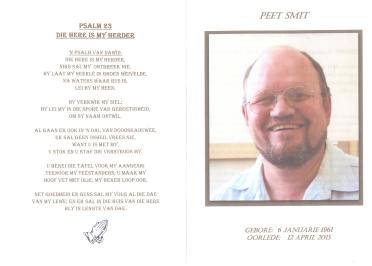 PSALM 23
DIE HERE IS MY HERDER
'N PSALM VAN DAWID.
DIE HERE IS MY HERDER,
NIKS SAL MY ONTBREEK NIE.
HY LAAT MY NEERLÊ IN GROEN WEIVELDE,
NA WATERS WAAR RUS IS,
LEI HY MY HEEN.
HY VERKWIK MY SIEL;
HY LEI MY IN DIE SPORE VAN GEREGTIGHEID,
OM SY NAAM ONTWIL.
AL GAAN EK OOK IN 'N DAL VAN DOODSKADUWEE,
EK SAL GEEN ONHEIL VREES NIE,
WANT U IS MET MY,
U STOK EN U STAF DIE VERTROOS MY.
U BEREI DIE TAFEL VOOR MY AANGESIG
TEENOOR MY TEËSTANDERS; U MAAK MY
HOOF VET MET OLIE; MY BEKER LOOP OOR.
NET GOEDHEID EN GUNS SAL MY VOLG AL DIE DAE
VAN MY LEWE; EN EK SAL IN DIE HUIS VAN DIE HERE
BLY IN LENGTE VAN DAE.
PEET SMIT
GEBORE: 6 JANUARIE 1961
OORLEDE: 12 APRIL 2013